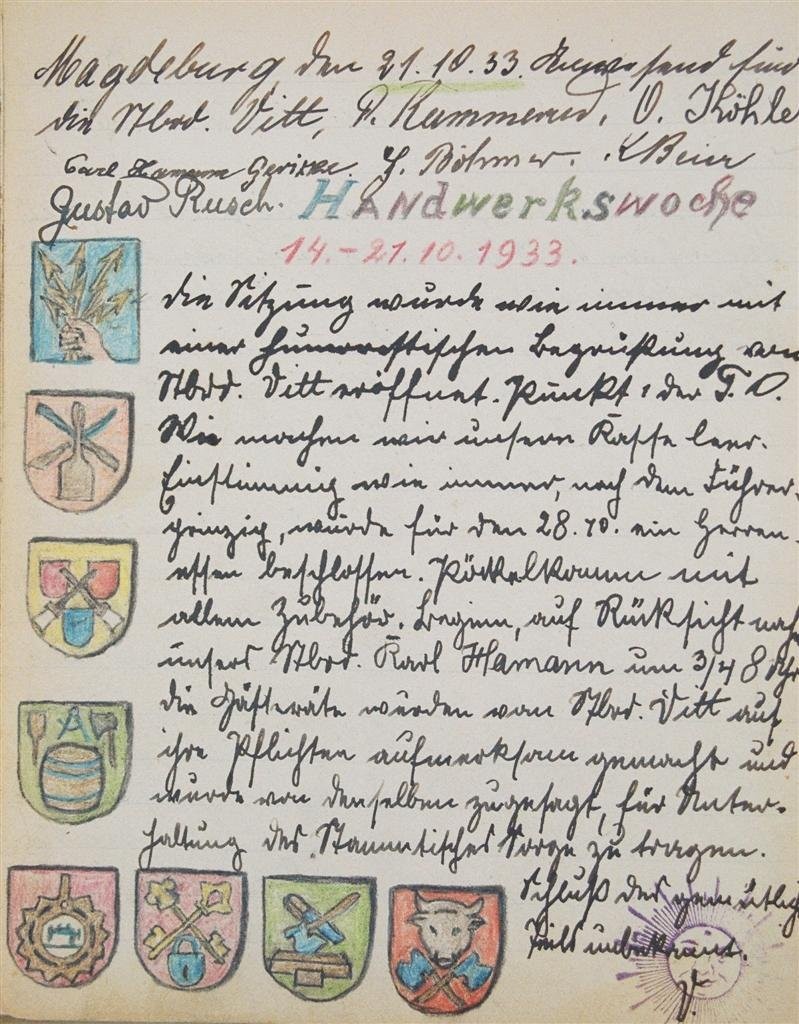 Magdeburg, den 21.10.33. Anwesend sind
die Stbrd. Vitt, P. Kammerad, O. Köhle
Carl Hamann Gericke. H. Böhmer. K Beier
Gustav Rusch. Handwerkswoche
14.-21.10.1933.
Die Sitzung wurde wie immer mit
einer humoristischen Begrüßung vom
Stbrd. Vitt eröffnet. Punkt 1 der T.O.
Wie machen wir unsere Kasse leer.
Einstimmig wie immer, nach dem Führer-
prinzip, wurde für den 28.10. ein Herren-
essen beschlossen. Pöckelkamm mit
allem Zubehör. Beginn, auf Rücksicht nah
unsers Stbrd. Karl Hamann um 3/4 8 Uhr
die Gästeräte wurden vom Stbrd. Vitt auf
ihre Pflichten aufmerksam gemacht und
wurde von denselben zugesagt, für Unter-
haltung des Stammtisches Sorge zu tragen.
Schluß des gemütlig
Teils unbekannt.